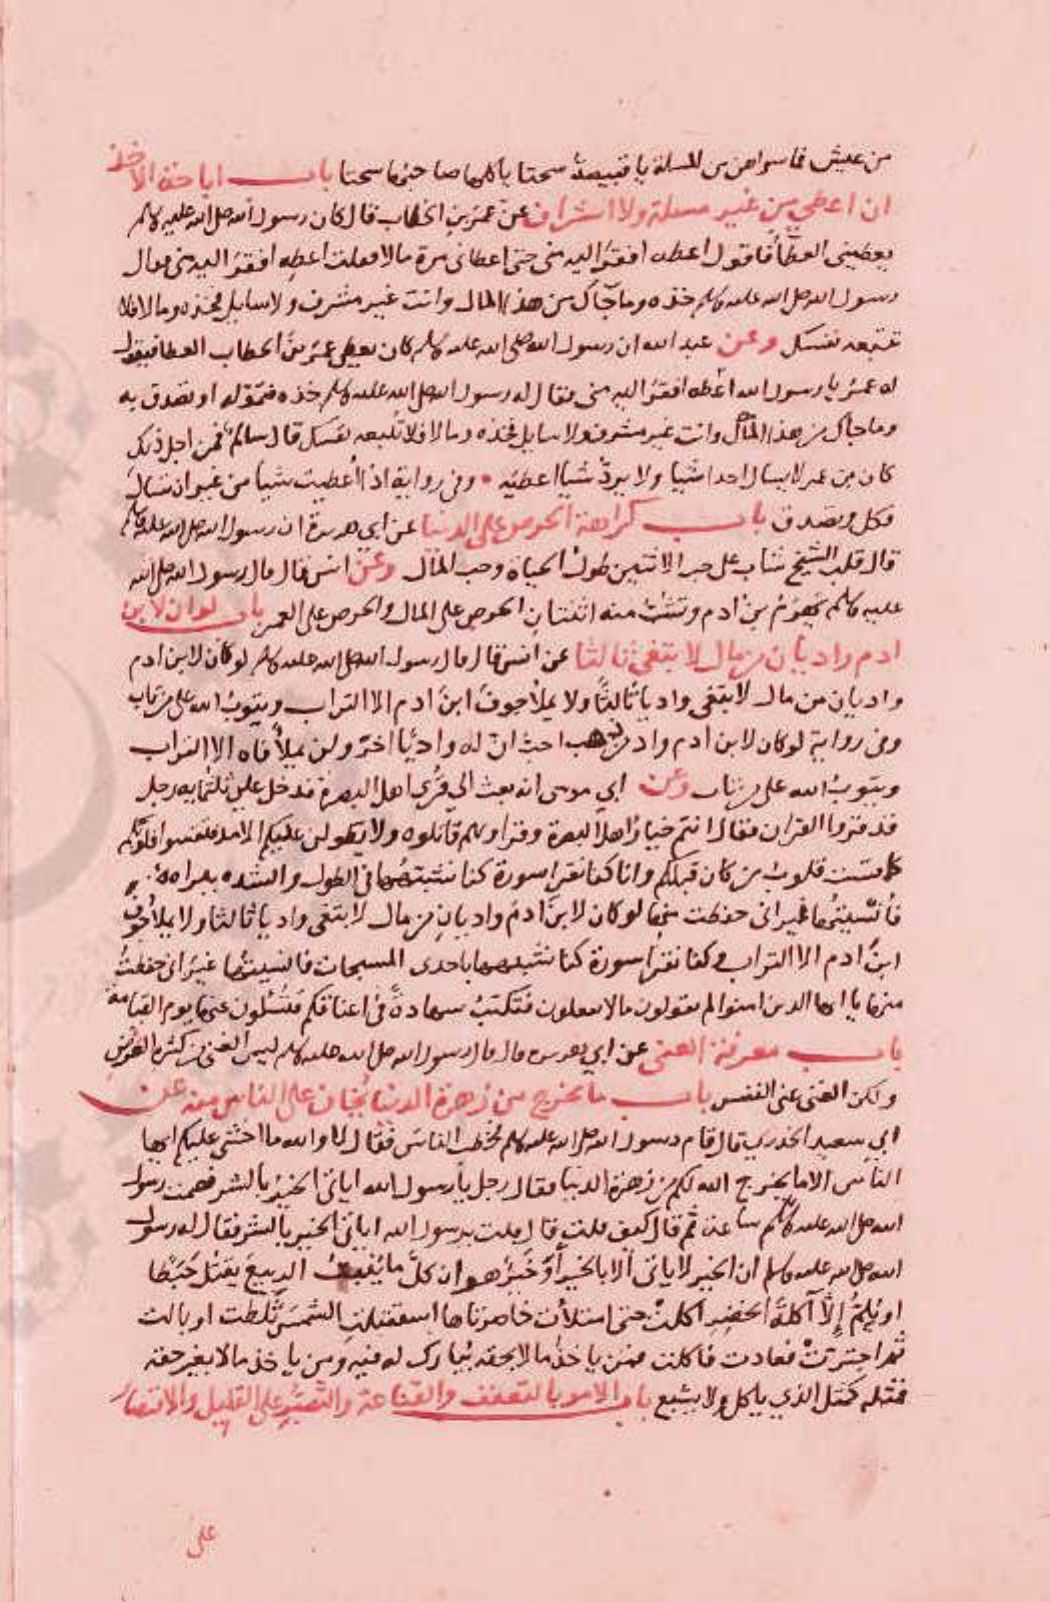 من عيش فما سواهن من المسلة يا قبيصة سحتا ياكلها صاحبها سحتا باب اباحة الاخذ
ان اعطي من غير مسلة ولا اشراف عن عمر بن الخطاب قال كان رسول الله صلى الله عليه وسلم
يعطيني العطآ فاقول اعطه افقر اليه مني حتى اعطاني مرة مالا فعلت اعطه افقر اليه مني فقال
رسول الله صلى الله عليه وسلم خذه وما جآك من هذا المال وانت غير مشرف ولا سايل فخذه وما لا فلا
تتبعه نفسك وعن عبد الله ان رسول الله صلى الله عليه وسلم كان يعطي عمر بن الخطاب العطا فيقول
له عمر يا رسول الله اعطه افقر اليه مني فقال له رسول الله صلى الله عليه وسلم خذه فتموّله او تصدق به
وما جاك من هذا المال وانت غير مشرف ولا سايل فخذه وما لا فلا تتبعه نفسك قال سالم فمن اجل ذلك
كان بن عمر لا يسال احدا شيا ولا يردّ شيا اعطيه وفي رواية اذا اعطيت شيا من غير ان تسال
فكل وتصدق باب كراهة الحرص على الدنيا عن ابي هريرة ان رسول الله صلى الله عليه وسلم
قال قلب الشيخ شاب على حب الاثنتين طول الحياة وحب المال وعن انس قال قال رسول الله صلى الله
عليه وسلم يهرم بن ادم وتشب منه اثنتان الحرص على المال والحرص على العمر باب لو ان لابن
ادم واديان من مال لابتغى ثالثا عن انس قال قال رسول الله صلى الله عليه وسلم لو كان لابن ادم
واديان من مال لابتغى واديا ثالثا ولا يملأ جوف ابن ادم الا التراب ويتوب الله على من تاب
وفي رواية لو كان لابن ادم واد من ذهب احب ان له واديا اخر ولن يملأ فاه الا التراب
ويتوب الله على من تاب وعن ابي موسى انه بعث الى قرى اهل البصرة فدخل عليه ثلثمايه رجل
قد قروا القران فقال انتم خيار اهل البصرة وقراوهم فاتلوه ولا يطولن عليكم الامد فتقسوا قلوبكم
كما قست قلوب من كان قبلكم وانا كنا نقرا سورة كنا نشبهها في الطول والشده ببراة
فأنسيتها غير اني حفظت منها لو كان لابن ادم واديان من مال لابتغى واديا ثالثا ولا يملأ جوف
ابن ادم الا التراب وكنا نقرا سورة كنا نشبهها باحدى المسبحات فانسيتها غير اني حفظت
منها يا ايها الذين امنوا لم تقولون مالا تفعلون فتكتب شهادة في اعناقكم فتسئلون عنها يوم القيامة
باب معرفة الغنى عن ابي هريره قال قال رسول الله صلى الله عليه وسلم ليس الغنى من كثرة العرض
ولكن الغنى غنى النفس باب ما يخرج من زهرة الدنيا يخاف على الناس منه عن
ابي سعيد الخدري قال قام رسول الله صلى الله عليه وسلم فخطب الناس فقال لا والله ما اخشى عليكم ايها
الناس الا ما يخرج الله لكم من زهرة الدنيا فقال رجل يا رسول الله اياتي الخير بالشر فصمت رسول
الله صلى الله عليه وسلم ساعة ثم قال كيف قلت قال قلت يرسول الله اياتي الخير بالشر فقال له رسول
الله صلى الله عليه وسلم ان الخير لا ياتي الا بالخير أو خير هو ان كل ما ينبت الربيع يقتل حبطا
او يلم إلا آكلة الخضر اكلت حتى امتلأت خاصرتاها استقبلت الشمس ثلطت او بالت
ثم اجترت فعادت فاكلت فمن ياخذ مالا بحقه يبارك له فيه ومن ياخذ مالا بغير حقه
فمثله كمثل الذي ياكل ولا يشبع باب الامر بالتعفف والقناعة والتصبر على القليل والاقتصار
على